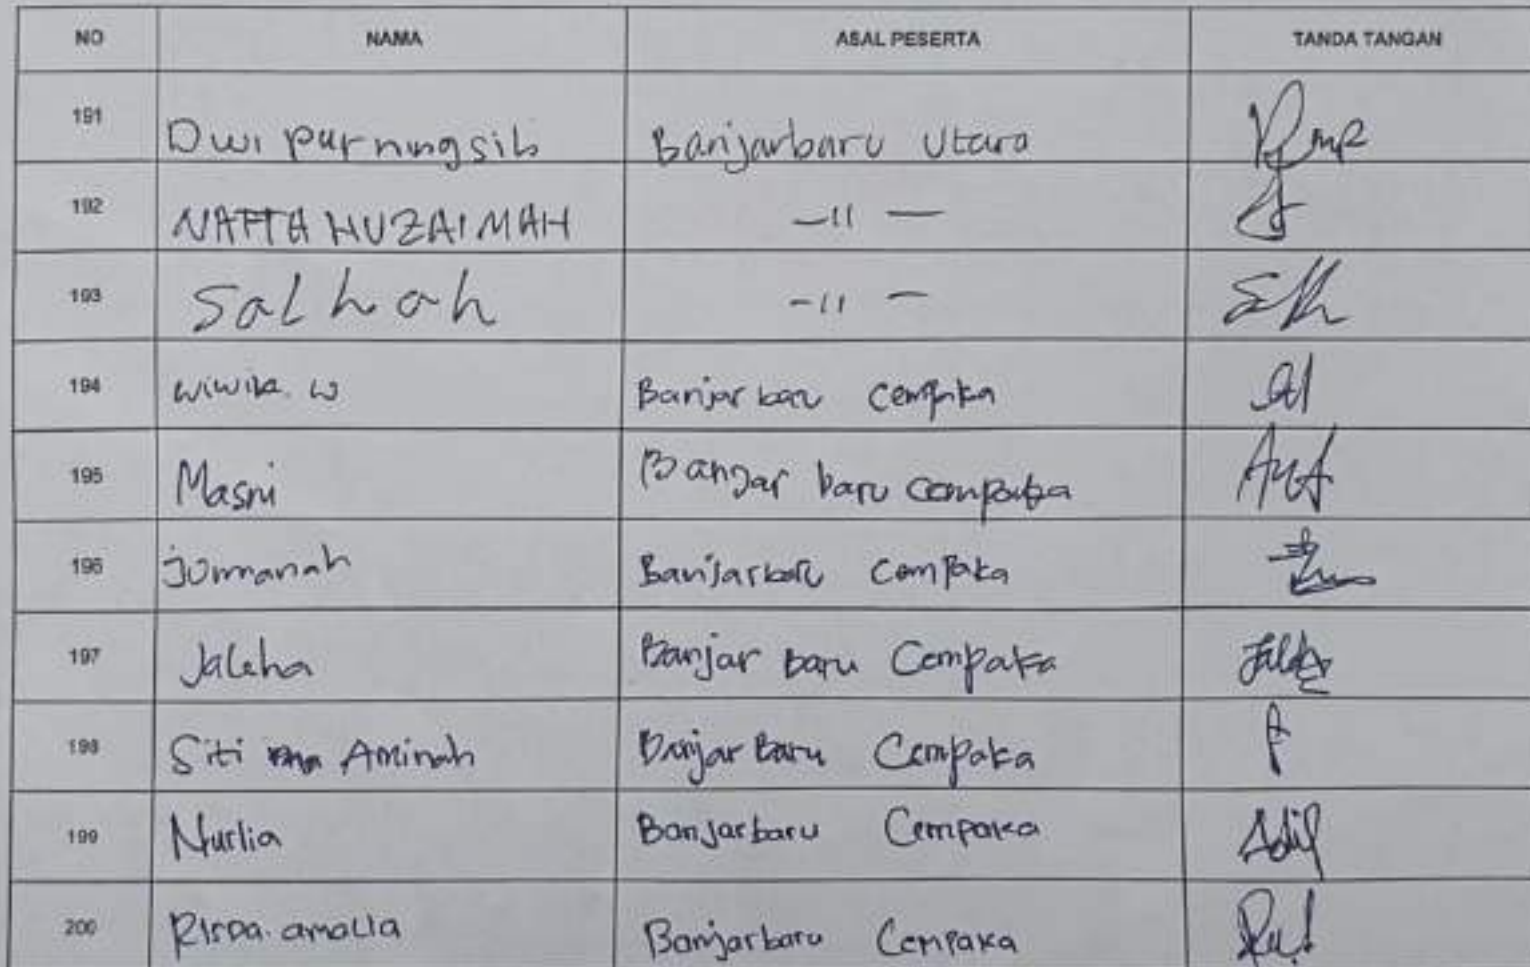 NO NAMA ASAL PESERTA TANDA TANGAN
191 Dwi purningsih Banjarbaru Utara
192 HUZAIMAH -11 -
193 Salhah -11 -
194 wiwik. w Banjar baru cempaka
195 Masni Banjar baru cempaka
196 jumanah Banjarbaru Cempaka
197 Jaleha Banjar baru Cempaka
198 Siti Aminah Banjar Baru Cempaka
199 Nurlia Banjarbaru Cempaka
200 amalia Banjarbaru Cempaka